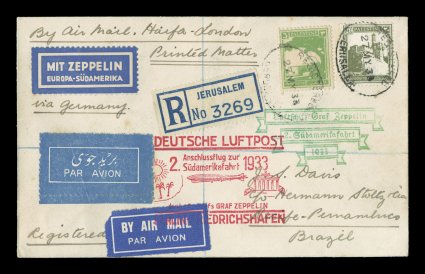 By Air Mail. Haifa-London
Printed Matter
MIT ZEPPELIN
EUROPA-SÜDAMERIKA
via Germany.
PALESTINE
JERUSALEM
R No 3269
JERUSALEM
Luftschiff Graf Zeppelin
2. Südamerikafahrt
1933
DEUTSCHE LUFTPOST
2. Anschlussflug zur
Südamerikafahrt 1933
بريد جوى
PAR AVION
GRAF ZEPPELIN
FRIEDRICHSHAFEN
BY AIR MAIL
PAR AVION
J. S. Davis
c/o Hermann Stoltz & Cia
Pernambuco
Brazil
Registered